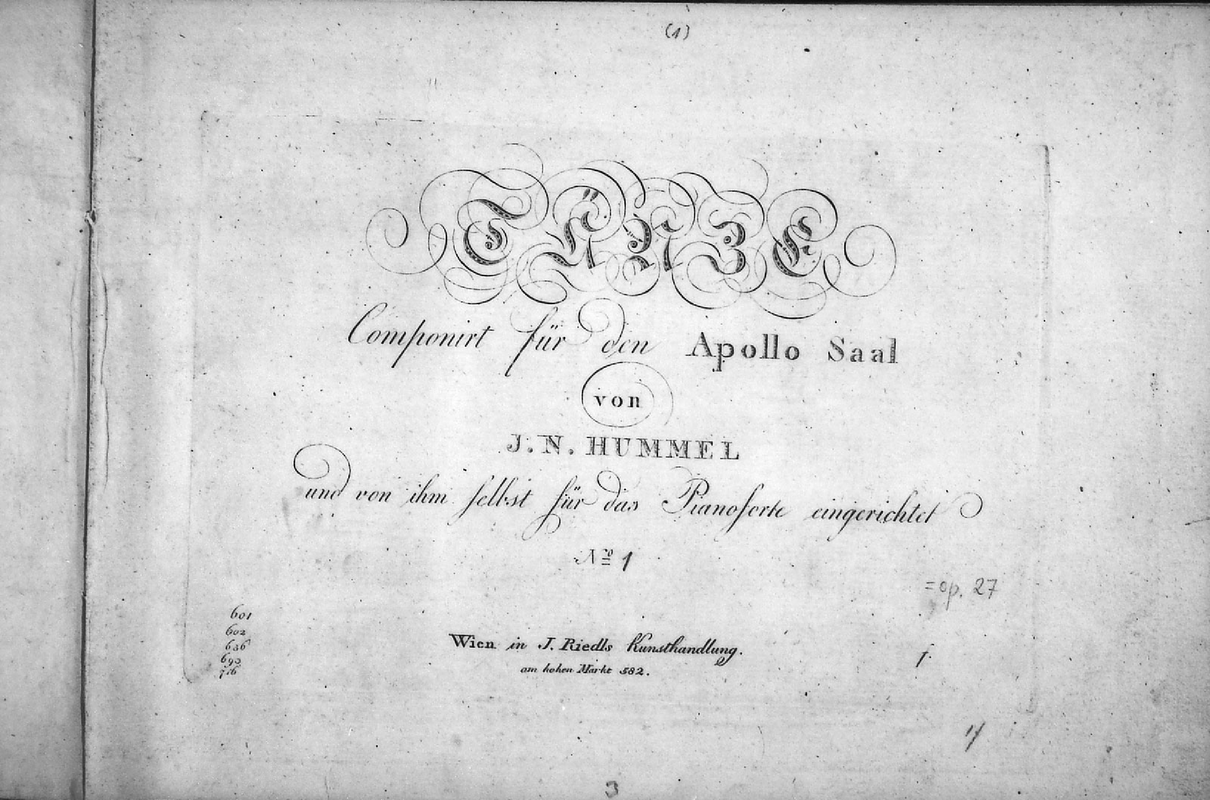 (1)
TÄNZE
Componirt für den Apollo Saal
von
J. N. HUMMEL
und von ihm selbst für das Pianoforte eingerichtet
No 1
=op. 27
601
602
636
690
Wien in J. Riedls Kunsthandlung.
am hohen Markt 582.
3